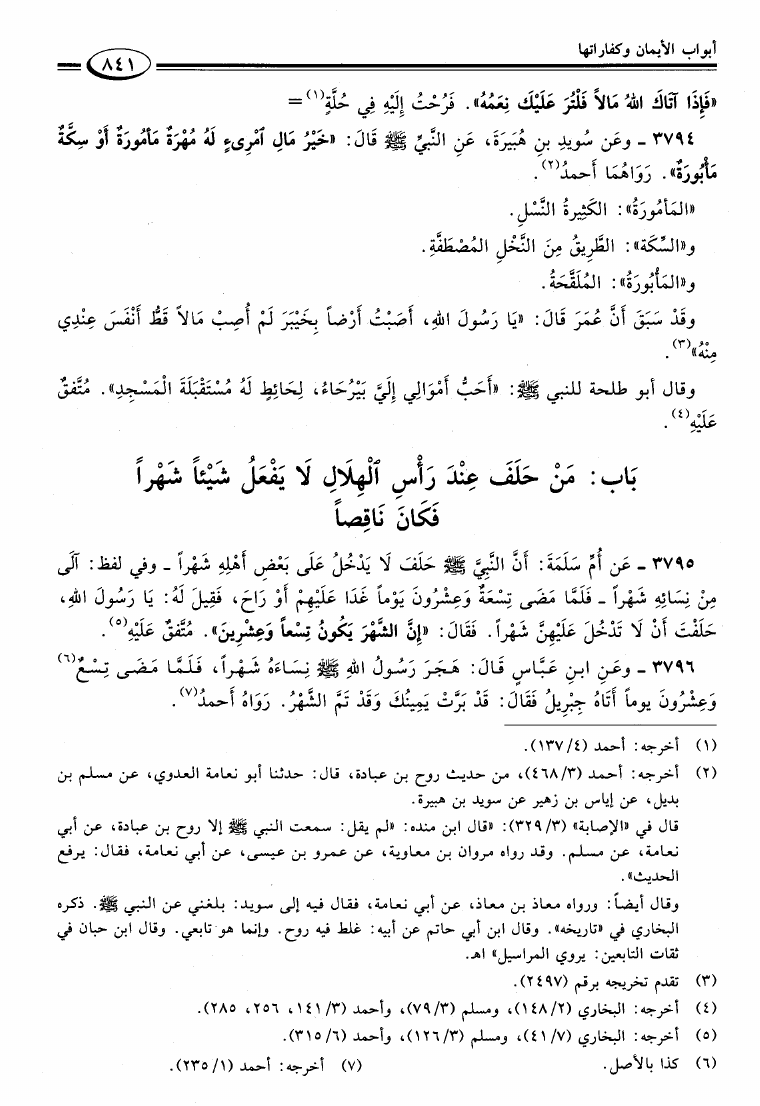 أبواب الأيمان وكفاراتها
٨٤١
«فَإِذَا آتَاكَ اللهُ مَالاً فَلْتُرَ عَلَيْكَ نِعَمُهُ». فَرُحْتُ إِلَيْهِ فِي حُلَّةٍ(١)=
٣٧٩٤ ـ وعَن سُويدِ بنِ هُبَيرَةَ، عَنِ النَّبيِّ ﷺ قَالَ: «خَيْرُ مَالِ ٱمْرِىءٍ لَهُ مُهْرَةٌ مَأمُورَةٌ أَوْ سِكَّةٌ
مَأْبُورَةٌ». رَوَاهُمَا أَحمدُ(٢).
«المَأمُورَةُ»: الكَثِيرةُ النَّسْلِ.
و«السِّكَة»: الطَّرِيقُ مِنَ النَّخْلِ المُصْطَفَّةِ.
و«المَأْبُورَةُ»: المُلَقَّحَةُ.
وقَدْ سَبَقَ أَنَّ عُمَرَ قَالَ: «يَا رَسُولَ اللهِ، أَصَبْتُ أَرْضاً بِخَيْبَرَ لَمْ أُصِبْ مَالاً قَطُّ أَنْفَسَ عِنْدِي
مِنْهُ»(٣).
وقال أبو طلحة للنبي ﷺ: «أَحَبُّ أَمْوَالِي إِلَيَّ بَيْرُحَاءُ، لِحَائِطٍ لَهُ مُسْتَقْبَلَةَ الْمَسْجِدِ». مُتَّفقٌ
عَلَيْهِ(٤).
بَاب: مَنْ حَلَفَ عِنْدَ رَأْسِ ٱلْهِلَالِ لَا يَفْعَلُ شَيْئاً شَهْراً
فَكَانَ نَاقِصاً
٣٧٩٥ ـ عَن أُمِّ سَلَمَةَ: أَنَّ النَّبيَّ ﷺ حَلَفَ لَا يَدْخُلُ عَلَى بَعْضِ أَهْلِهِ شَهْراً ـ وفي لفظ: آلَى
مِنْ نِسَائِهِ شَهْراً ـ فَلَمَّا مَضَى تِسْعَةٌ وَعِشْرُونَ يَوْماً غَدَا عَلَيْهِمْ أَوْ رَاحَ، فَقِيلَ لَهُ: يَا رَسُولَ اللهِ،
حَلَفْتَ أَنْ لَا تَدْخُلَ عَلَيْهِنَّ شَهْراً. فَقَالَ: «إِنَّ الشَّهْرَ يَكُونُ تِسْعاً وَعِشْرِينَ». مُتَّفقٌ عَلَيْهِ(٥).
٣٧٩٦ ـ وعَنِ ابنِ عَبَّاسٍ قَالَ: هَجَرَ رَسُولُ اللهِ ﷺ نِسَاءَهُ شَهْراً، فَلَمَّا مَضَى تِسْعٌ(٦)
وَعِشْرُونَ يوماً أَتَاهُ جِبْرِيلُ فَقَالَ: قَدْ بَرَّتْ يَمِينُكَ وَقَدْ تَمَّ الشَّهْرُ. رَوَاهُ أَحمدُ(٧).
(١) أخرجه: أحمد (٤/ ١٣٧).
(٢) أخرجه: أحمد (٣/ ٤٦٨)، من حديث روح بن عبادة، قال: حدثنا أبو نعامة العدوي، عن مسلم بن
بديل، عن إياس بن زهير عن سويد بن هبيرة.
قال في «الإصابة» (٣/ ٣٢٩): «قال ابن منده: «لم يقل: سمعت النبي ﷺ إلا روح بن عبادة، عن أبي
نعامة، عن مسلم. وقد رواه مروان بن معاوية، عن عمرو بن عيسى، عن أبي نعامة، فقال: يرفع
الحديث».
وقال أيضاً: ورواه معاذ بن معاذ، عن أبي نعامة، فقال فيه إلى سويد: بلغني عن النبي ﷺ. ذكره
البخاري في «تاريخه». وقال ابن أبي حاتم عن أبيه: غلط فيه روح. وإنما هو تابعي. وقال ابن حبان في
ثقات التابعين: يروي المراسيل» اهـ.
(٣) تقدم تخريجه برقم (٢٤٩٧).
(٤) أخرجه: البخاري (٢/ ١٤٨)، ومسلم (٣/ ٧٩)، وأحمد (٣/ ١٤١، ٢٥٦، ٢٨٥).
(٥) أخرجه: البخاري (٧/ ٤١)، ومسلم (٣/ ١٢٦)، وأحمد (٦/ ٣١٥).
(٦) كذا بالأصل. (٧) أخرجه: أحمد (١/ ٢٣٥).